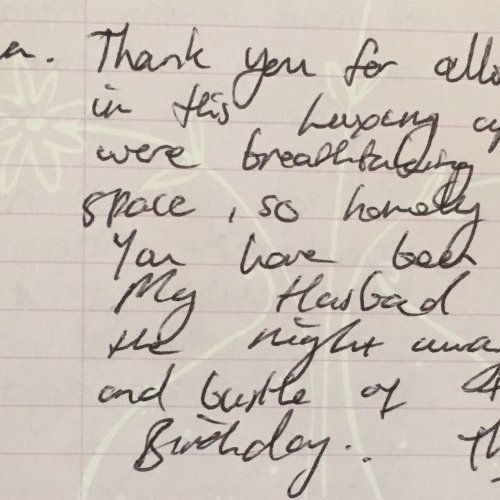 a. Thank you for allo
in this luxury ap
were breathtaking
space, so homely
You have been
My Husbad
the night awa
and bustle of
Birthday.. Th